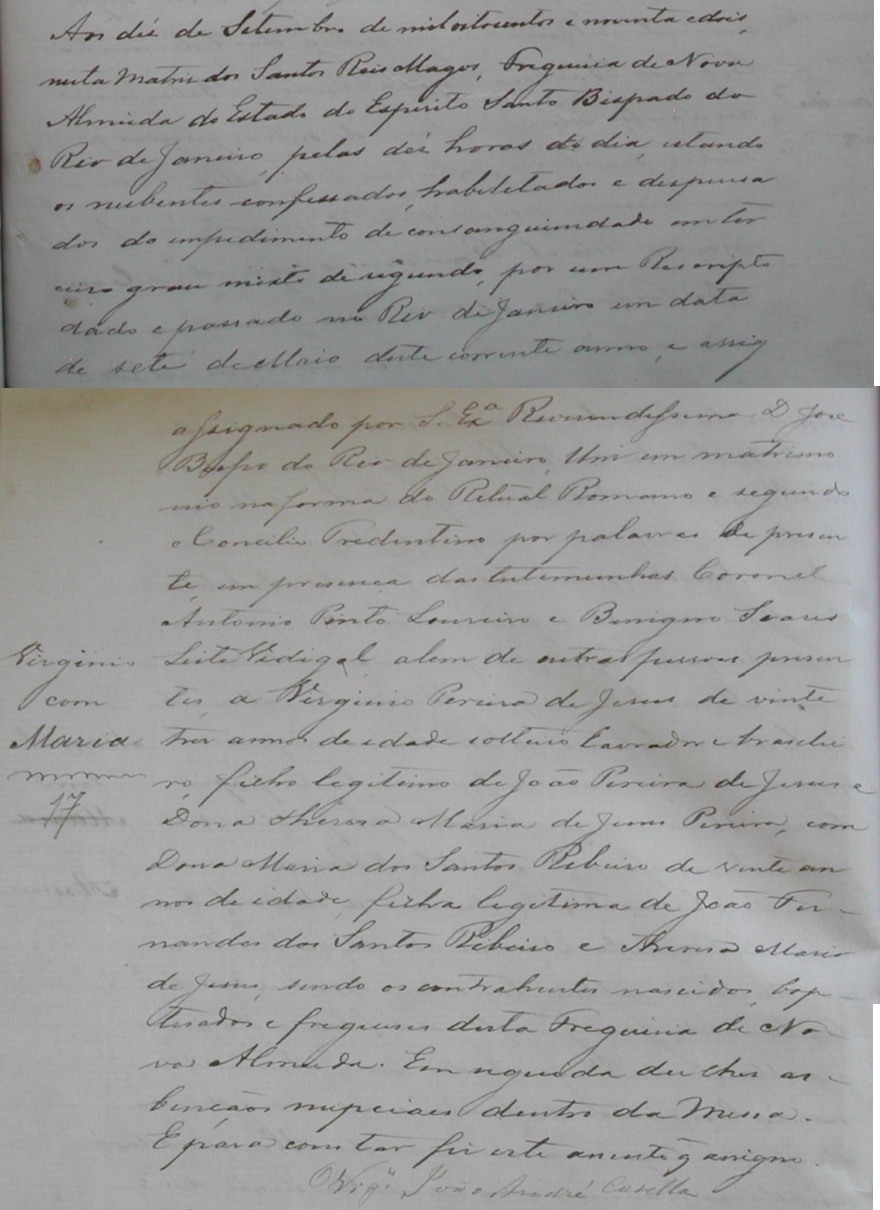 Aos dez de Setembro de mil oitocentos e noventa e dois,
nesta Matriz dos Santos Reis Magos, Freguezia de Nova
Almeida do Estado do Espirito Santo Bispado do
Rio de Janeiro, pelas dez horas do dia, estando
os nubentes confessados, habeletados e despensa
dos do empedimento de consanguinidade em ter
ceiro grau mixto de segundo, por um Rescripto
dado e passado no Rio de Janeiro em data
de sete de Maio deste corrente anno, e assig
assignado por S. Exª Reverendissima D José
Bispo do Rio de Janeiro, Uni em matrimo
nio na forma do Ritual Romano e segundo
o Concilio Tredentino por palavras de presen
te, em presença das testemunhas Coronel
Antonio Pinto Loureiro e Benigno Soares
Leite Vidigal alem de outras pessoas presen
tes a Virginio Pereira de Jesus de vinte
tres annos de edade solteiro lavrador e brasilei
ro filho legitimo de João Pereira de Jesus e
Dona Theresa Maria de Jesus Pereira, com
Dona Maria dos Santos Ribeiro de vinte an
nos de edade filha legitima de João Fer-
nandes dos Santos Ribeiro e Theresa Maria
de Jesus, sendo os contrahentes nascidos, bap-
tisados e fregueses desta Freguezia de No-
va Almeida. Em seguida dei lhes as-
bençãos nupciaes dentro da Missa.
E para constar fiz este assento q assigno.
O Vigº João André Casella
Virginio
com
Maria
17